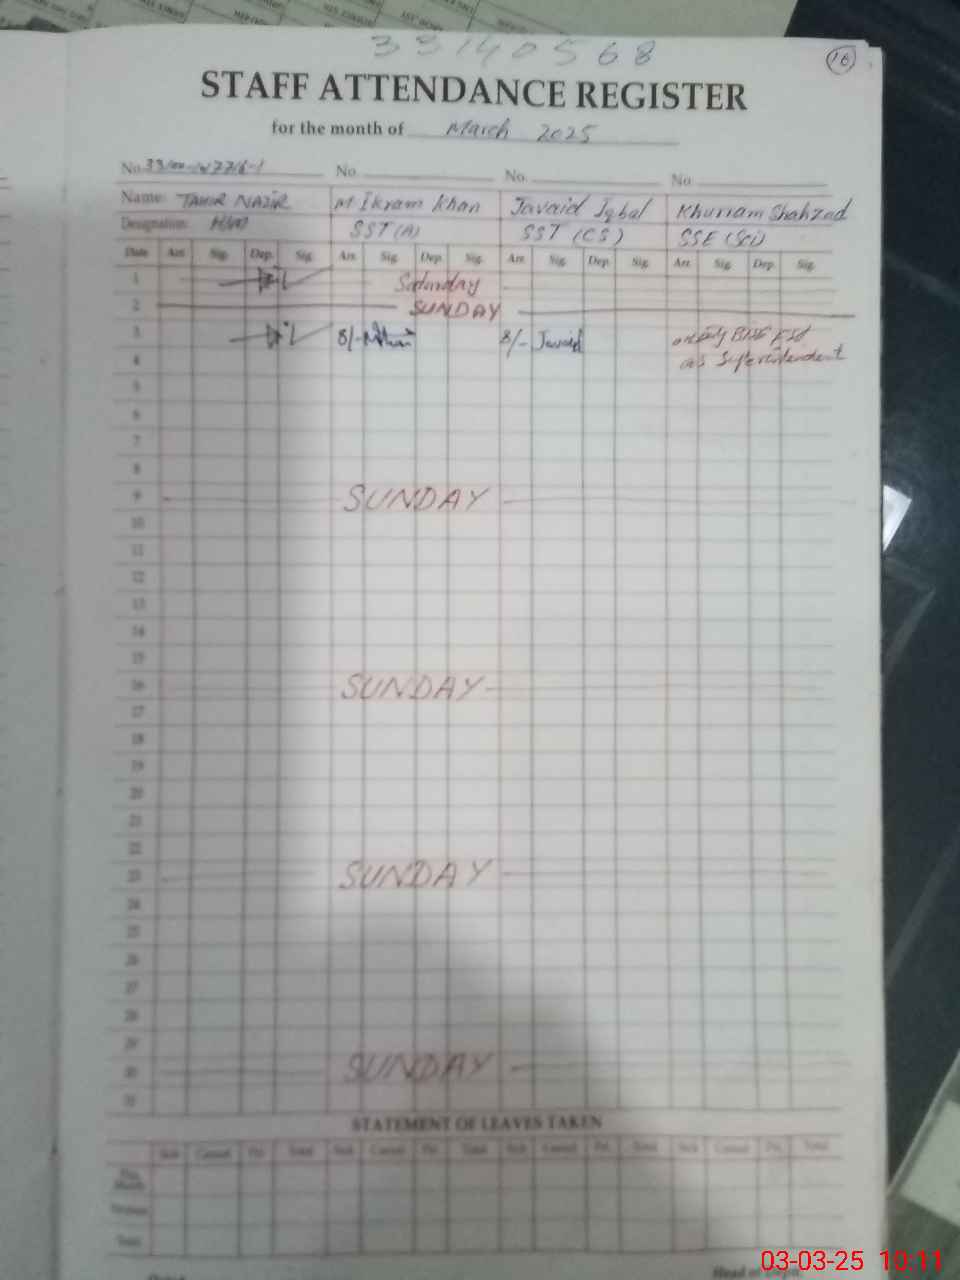 33140568
16
STAFF ATTENDANCE REGISTER
for the month of March 2025
No. No. No. No.
Name: TAHIR NAZIR M Ikram Khan Javaid Iqbal Khurram Shahzad
Designation: SST (A) SST (CS) SSE (Sci)
Date Arr. Sig. Dep. Sig. Arr. Sig. Dep. Sig. Arr. Sig. Dep. Sig. Arr. Sig. Dep. Sig.
1 Saturday
2 SUNDAY
3 8/- 8/- Javaid
4 as Superintendent
5
6
7
8
9 SUNDAY
10
11
12
13
14
15
16 SUNDAY
17
18
19
20
21
22
23 SUNDAY
24
25
26
27
28
29
30 SUNDAY
31
STATEMENT OF LEAVES TAKEN
Sick Casual Pri. Total Sick Casual Pri. Total Sick Casual Pri. Total Sick Casual Pri. Total
Month
Total
Head of Deptt.
03-03-25 10:11